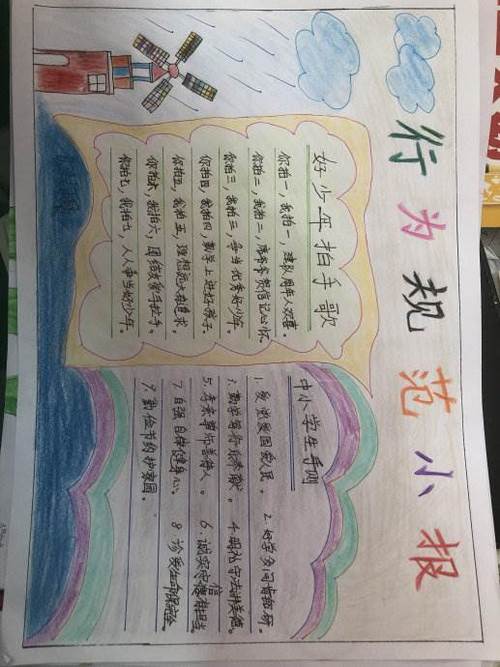 行为规范小报
好少年拍手歌
你拍一，我拍一，建队周年人欢喜。
你拍二，我拍二，席爷爷贺信记心怀。
你拍三，我拍三，争当优秀好少年。
你拍四，我拍四，勤学上进好孩子。
你拍五，我拍五，理想远大有追求。
你拍六，我拍六，团结友爱手拉手。
你拍七，我拍七，人人争当好少年。
中小学生手则
1. 爱党爱国爱人民。 2. 好学多问肯钻研。
3. 勤学笃行乐奉献。 4. 明礼守法讲美德。
5. 孝亲尊师善待人。 6. 诚实守信有担当。
7. 自强自律健身心。 8 珍爱生命保安全。
9. 勤俭节约护家园。